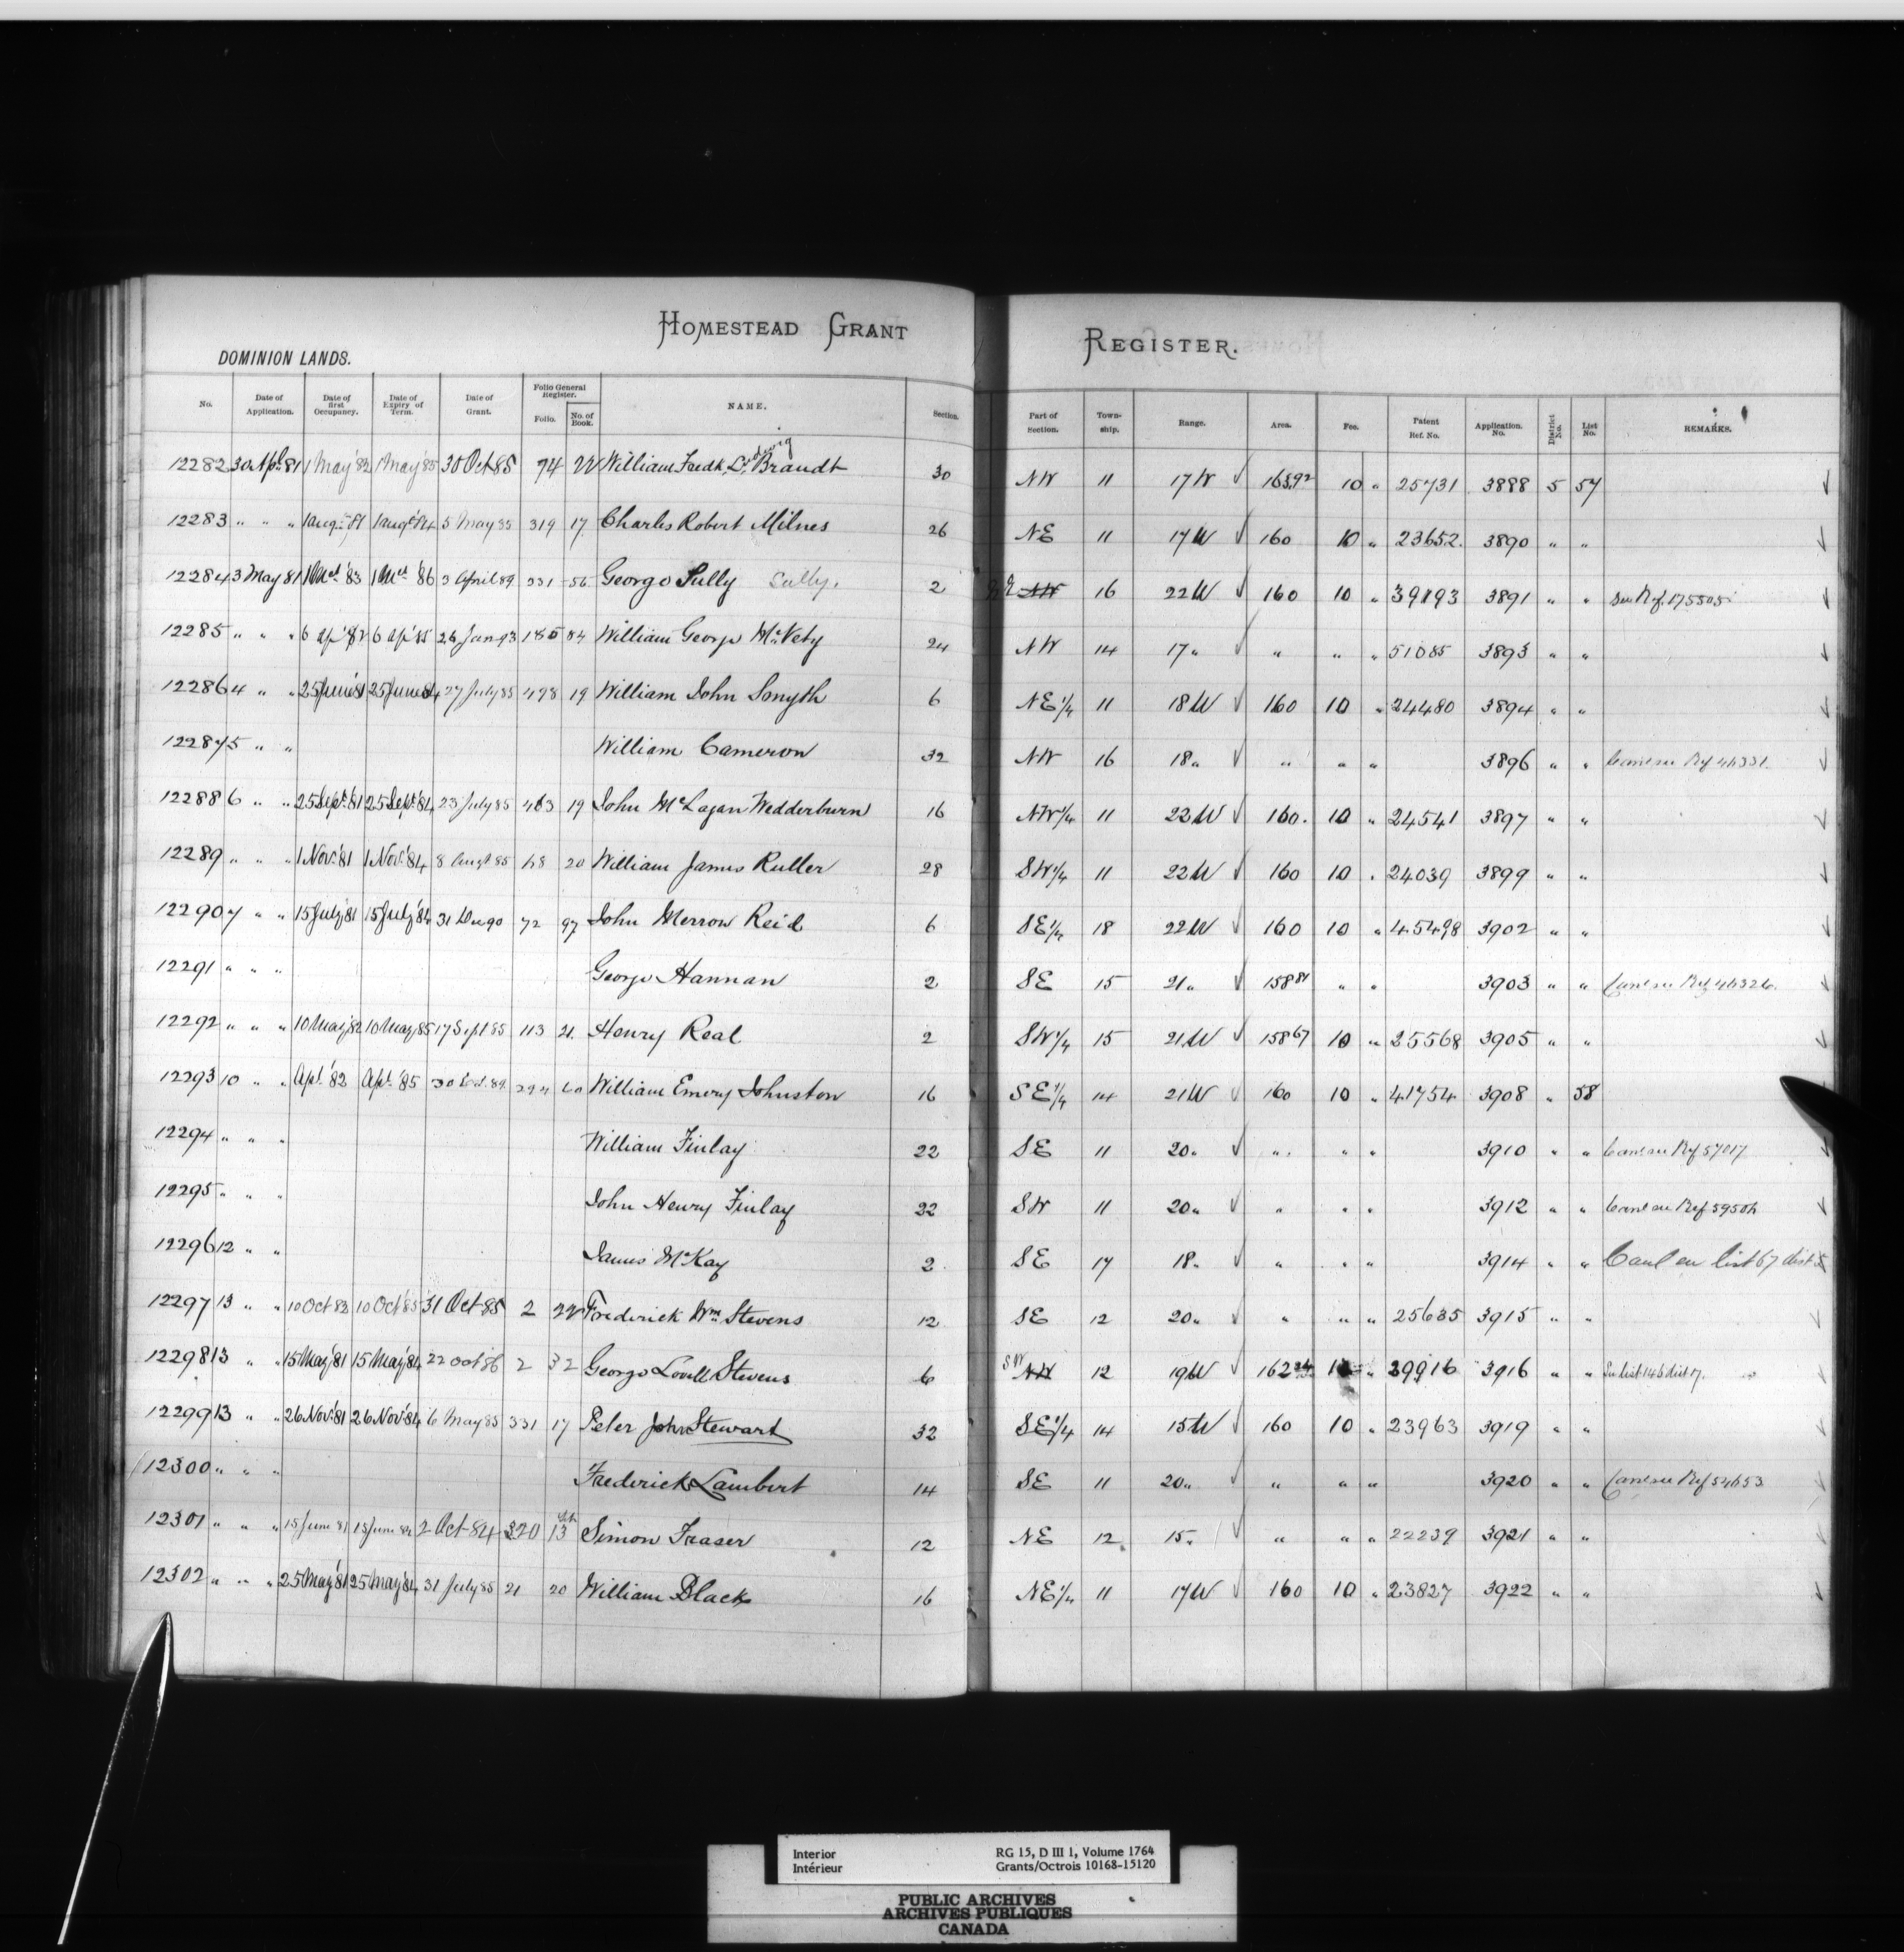 HOMESTEAD GRANT REGISTER.
DOMINION LANDS.
No. Date of Application. Date of first Occupancy. Date of Expiry of Term. Date of Grant. Folio General Register. Folio. No. of Book. NAME. Section. Part of Section. Town-ship. Range. Area. Fee. Patent Ref. No. Application. No. District No. List No. REMARKS.
12282 30 Apl. 81 1 May '82 1 May '85 30 Oct 85 74 22 William Fredk. Ludwig Brandt 30 NW 11 17 W 163.92 10 " 25731 3888 5 57
12283 " " " 1 Augt. 81 1 Augt. 84 5 May 85 319 17 Charles Robert Milnes 26 NE 11 17 W 160 10 " 23652. 3890 " "
12284 3 May 81 1 '83 1 '86 3 April 89 331 56 George Sully Sully. 2 NW 16 22 W 160 10 " 39193 3891 " " See Ref. 175505
12285 " " " 6 Ap '82 6 Ap '85 26 Jan 93 185 84 William George McVety 24 NW 14 17 " " " " 51085 3893 " "
12286 4 " " 25 June '81 25 June 84 27 July 85 498 19 William John Smyth 6 NE 1/4 11 18 W 160 10 " 24480 3894 " "
12287 5 " " William Cameron 32 NW 16 18 " " " " 3896 " " Canc see Ref 46331.
12288 6 " " 25 Sept. '81 25 Sept. '84 23 July 85 463 19 John McLagan Wedderburn 16 NW 1/4 11 22 W 160. 10 " 24541 3897 " "
12289 " " " 1 Nov. '81 1 Nov. '84 8 Augt 85 68 20 William James Ruller 28 SW 1/4 11 22 W 160 10 " 24039 3899 " "
12290 7 " " 15 July '81 15 July '84 31 Dec 90 72 97 John Merrow Reid 6 SE 1/4 18 22 W 160 10 " 45498 3902 " "
12291 " " " George Hannan 2 SE 15 21 " 158 81 " " 3903 " " Canc see Ref 46326.
12292 " " " 10 May '82 10 May 85 17 Sept 85 113 21. Henry Real 2 SW 1/4 15 21 W 158 67 10 " 25568 3905 " "
12293 10 " " Apl. '82 Apl. '85 30 89 294 60 William Emery Johnston 16 SE 1/4 14 21 W 160 10 " 41754 3908 " 58
12294 " " " William Finlay 22 SE 11 20 " " " " 3910 " " Canc see Ref 57017
12295 " " " John Henry Finlay 22 SW 11 20 " " " " 3912 " " Canc see Ref 59504
12296 12 " " James McKay 2 SE 17 18 " " " " 3914 " " Canl see list 67 dist 5
12297 13 " " 10 Oct 82 10 Oct 85 31 Oct 85 2 22 Frederick Wm. Stevens 12 SE 12 20 " " " " 25635 3915 " "
12298 13 " " 15 May '81 15 May '84 22 Oct 86 2 32 George Lovell Stevens 6 SW NW 12 19 W 162 24 10 " 29916 3916 " " See list 146 dist 17.
12299 13 " " 26 Nov. '81 26 Nov. '84 6 May 85 331 17 Peter John Stewart 32 SE 1/4 14 15 W 160 10 " 23963 3919 " "
12300 " " " Frederick Lambert 14 SE 11 20 " " " " 3920 " " Canc see Ref 54653
12301 " " " 15 June 81 15 June 84 2 Oct 84 320 13 Simon Fraser 12 NE 12 15 " " " " 22239 3921 " "
12302 " " " 25 May '81 25 May '84 31 July 85 21 20 William Black 16 NE 1/4 11 17 W 160 10 " 23827 3922 " "
Interior RG 15, D III 1, Volume 1764
Intérieur Grants/Octrois 10168-15120
PUBLIC ARCHIVES
ARCHIVES PUBLIQUES
CANADA